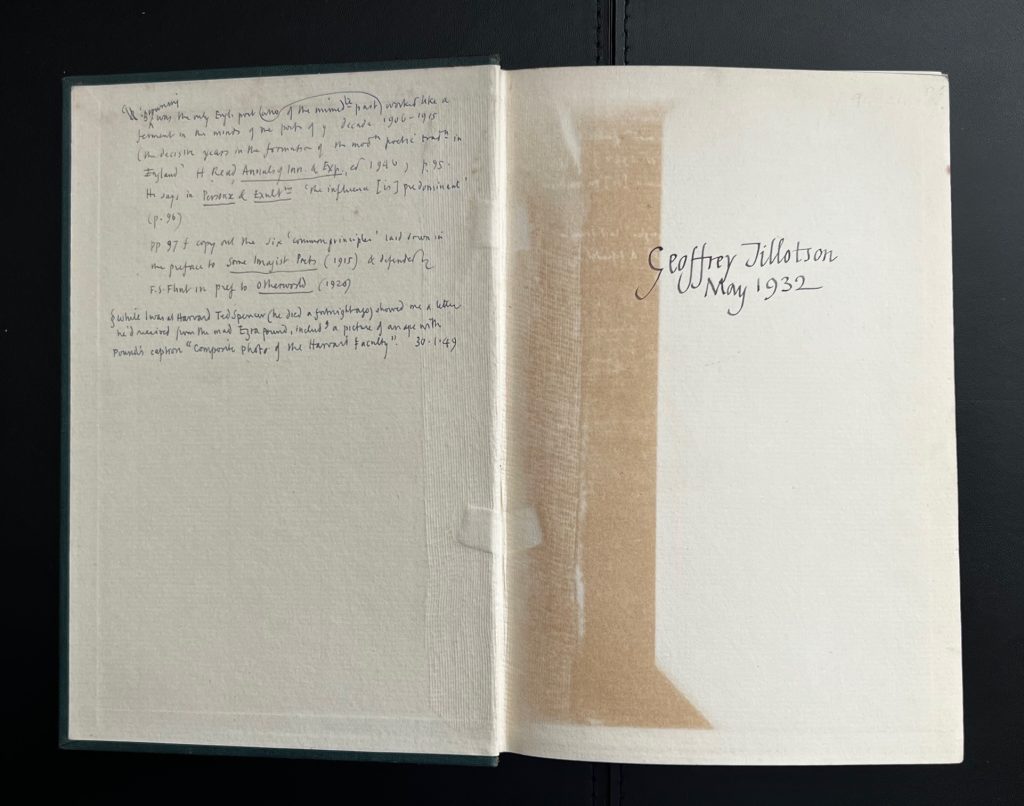 was the only Engl. poet (who of the mine) pt past) worked like a
ferment in the minds of the poets of y decade 1906-1915
(the decisive years in the formation of the modn poetic tradn in
England' H Read Annals of Inn. & Exp., ed 1946, p. 95.
He says in Personæ & Exultns 'the influence [is] predominent'
(p. 96)
pp 97 f copy out the six 'common principles' laid down in
the preface to Some Imagist Poets (1915) &
F. S. Flint in pref to Otherworld (1920)
§ While I was at Harvard Ted Spencer (he died a fortnight ago) showed me a letter
he'd received from the mad Ezra Pound, includg a picture of an ape with
Pound's caption "Composite photo of the Harvard Faculty". 30.1.49
Geoffrey Tillotson
May 1932